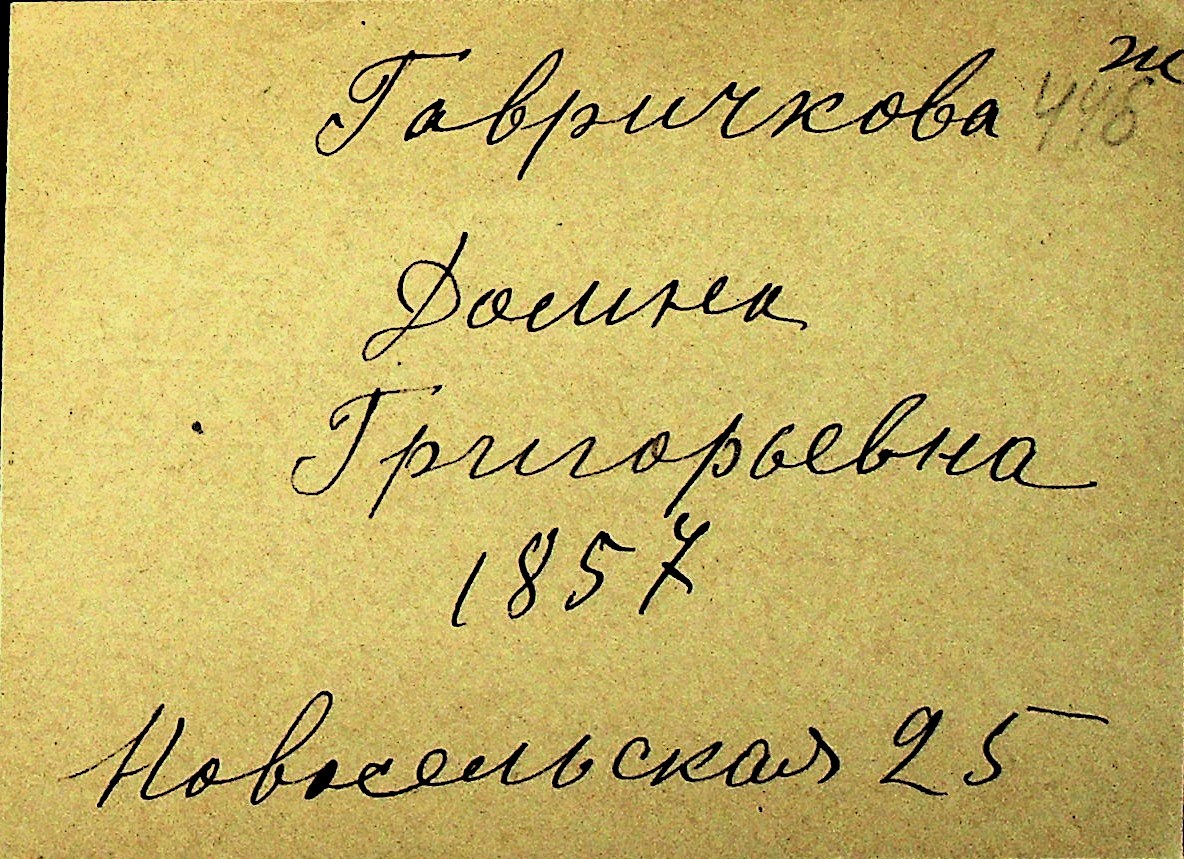 Гавричкова
Домна
Григорьевна
1857
Новосельская 25